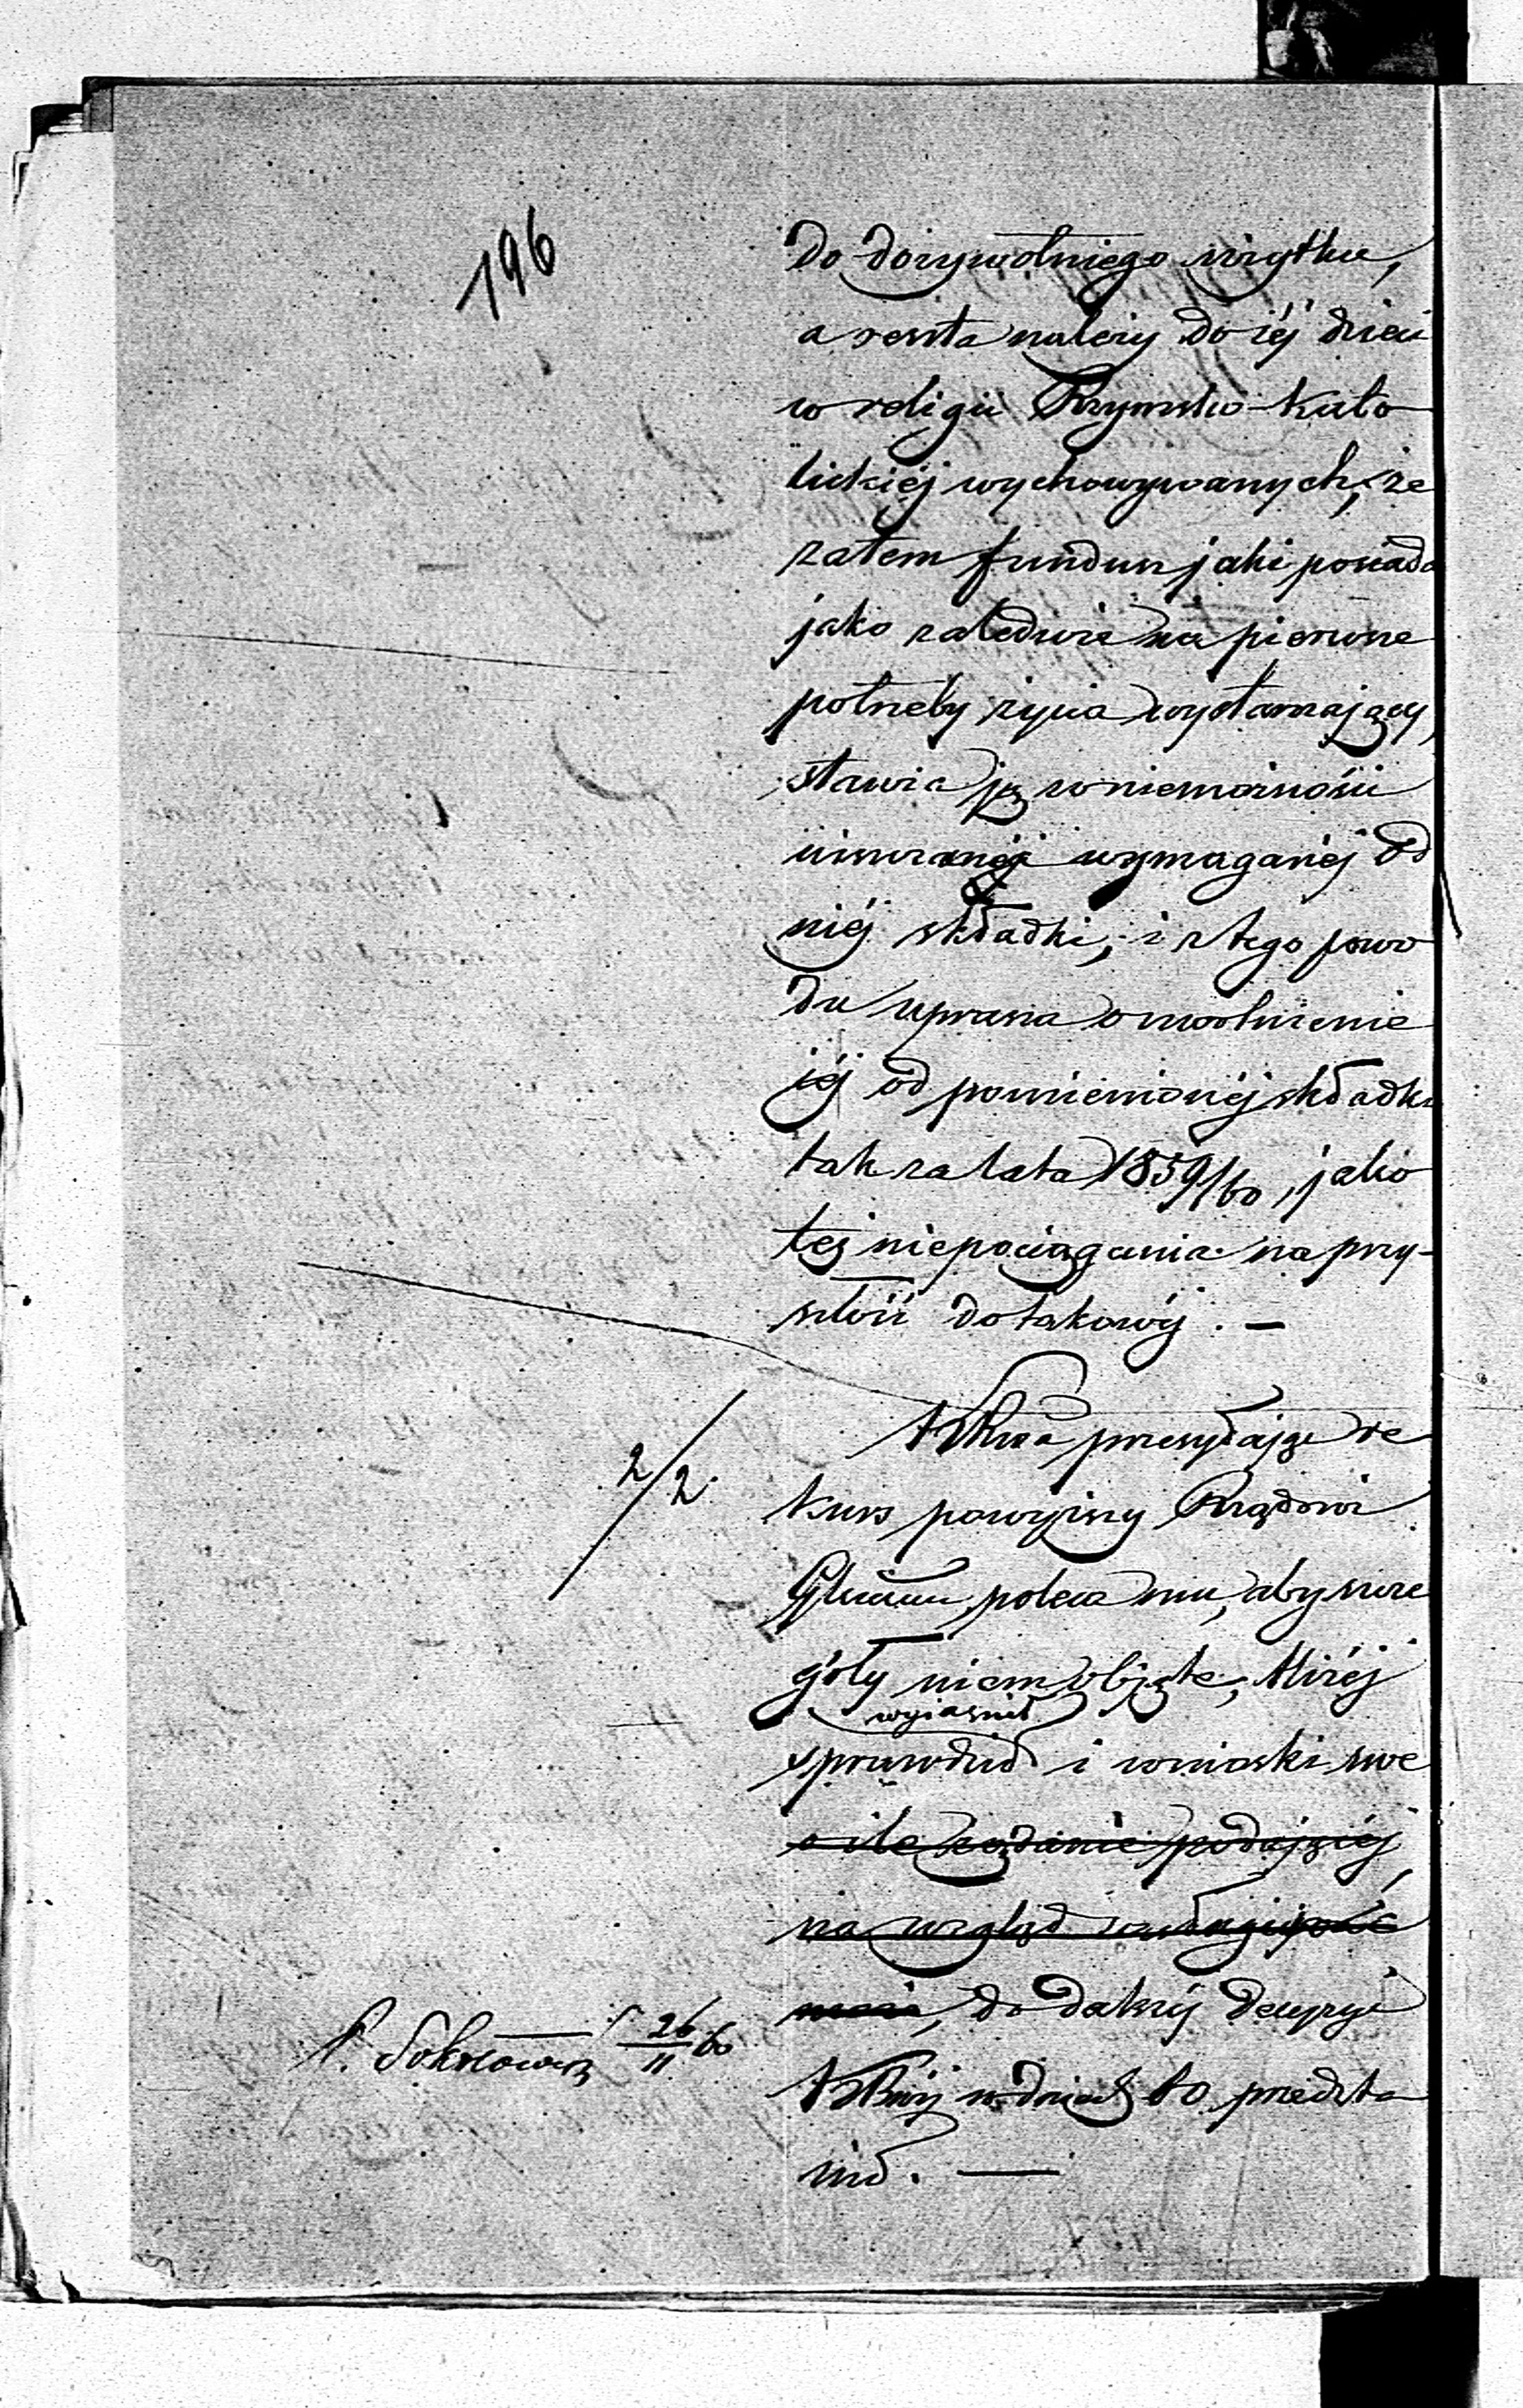 196
do dożywotniego użytku,
a reszta należy do jéj dzieci
w religii Rzymsko-Kato
lickiéj wychowywanych; że
zatem fundusz jaki posiada
jako zaledwie na pierwsze
potrzeby życia wystarczający,
stawia ją w niemożności
uiszczenia wymaganéj od
niéj składki, i z tego powo
du uprasza o uwolnienie
jéj od pomienionéj składki
tak za lata 1859/60, jako
też niepociągania na przy-
szłość do takowéj. —
przesyłając re
kurs powyższy Rządowi
poleca mu, aby szcze
góły niem objęte, bliżéj
wyjaśnił
sprawdził i wnioski swe
o ile żądanie podającéj
na wzgląd zasługiwać
może, do dalszéj decyzyi
w dniach 10 przedsta
wił. —
2/2
26/11 60